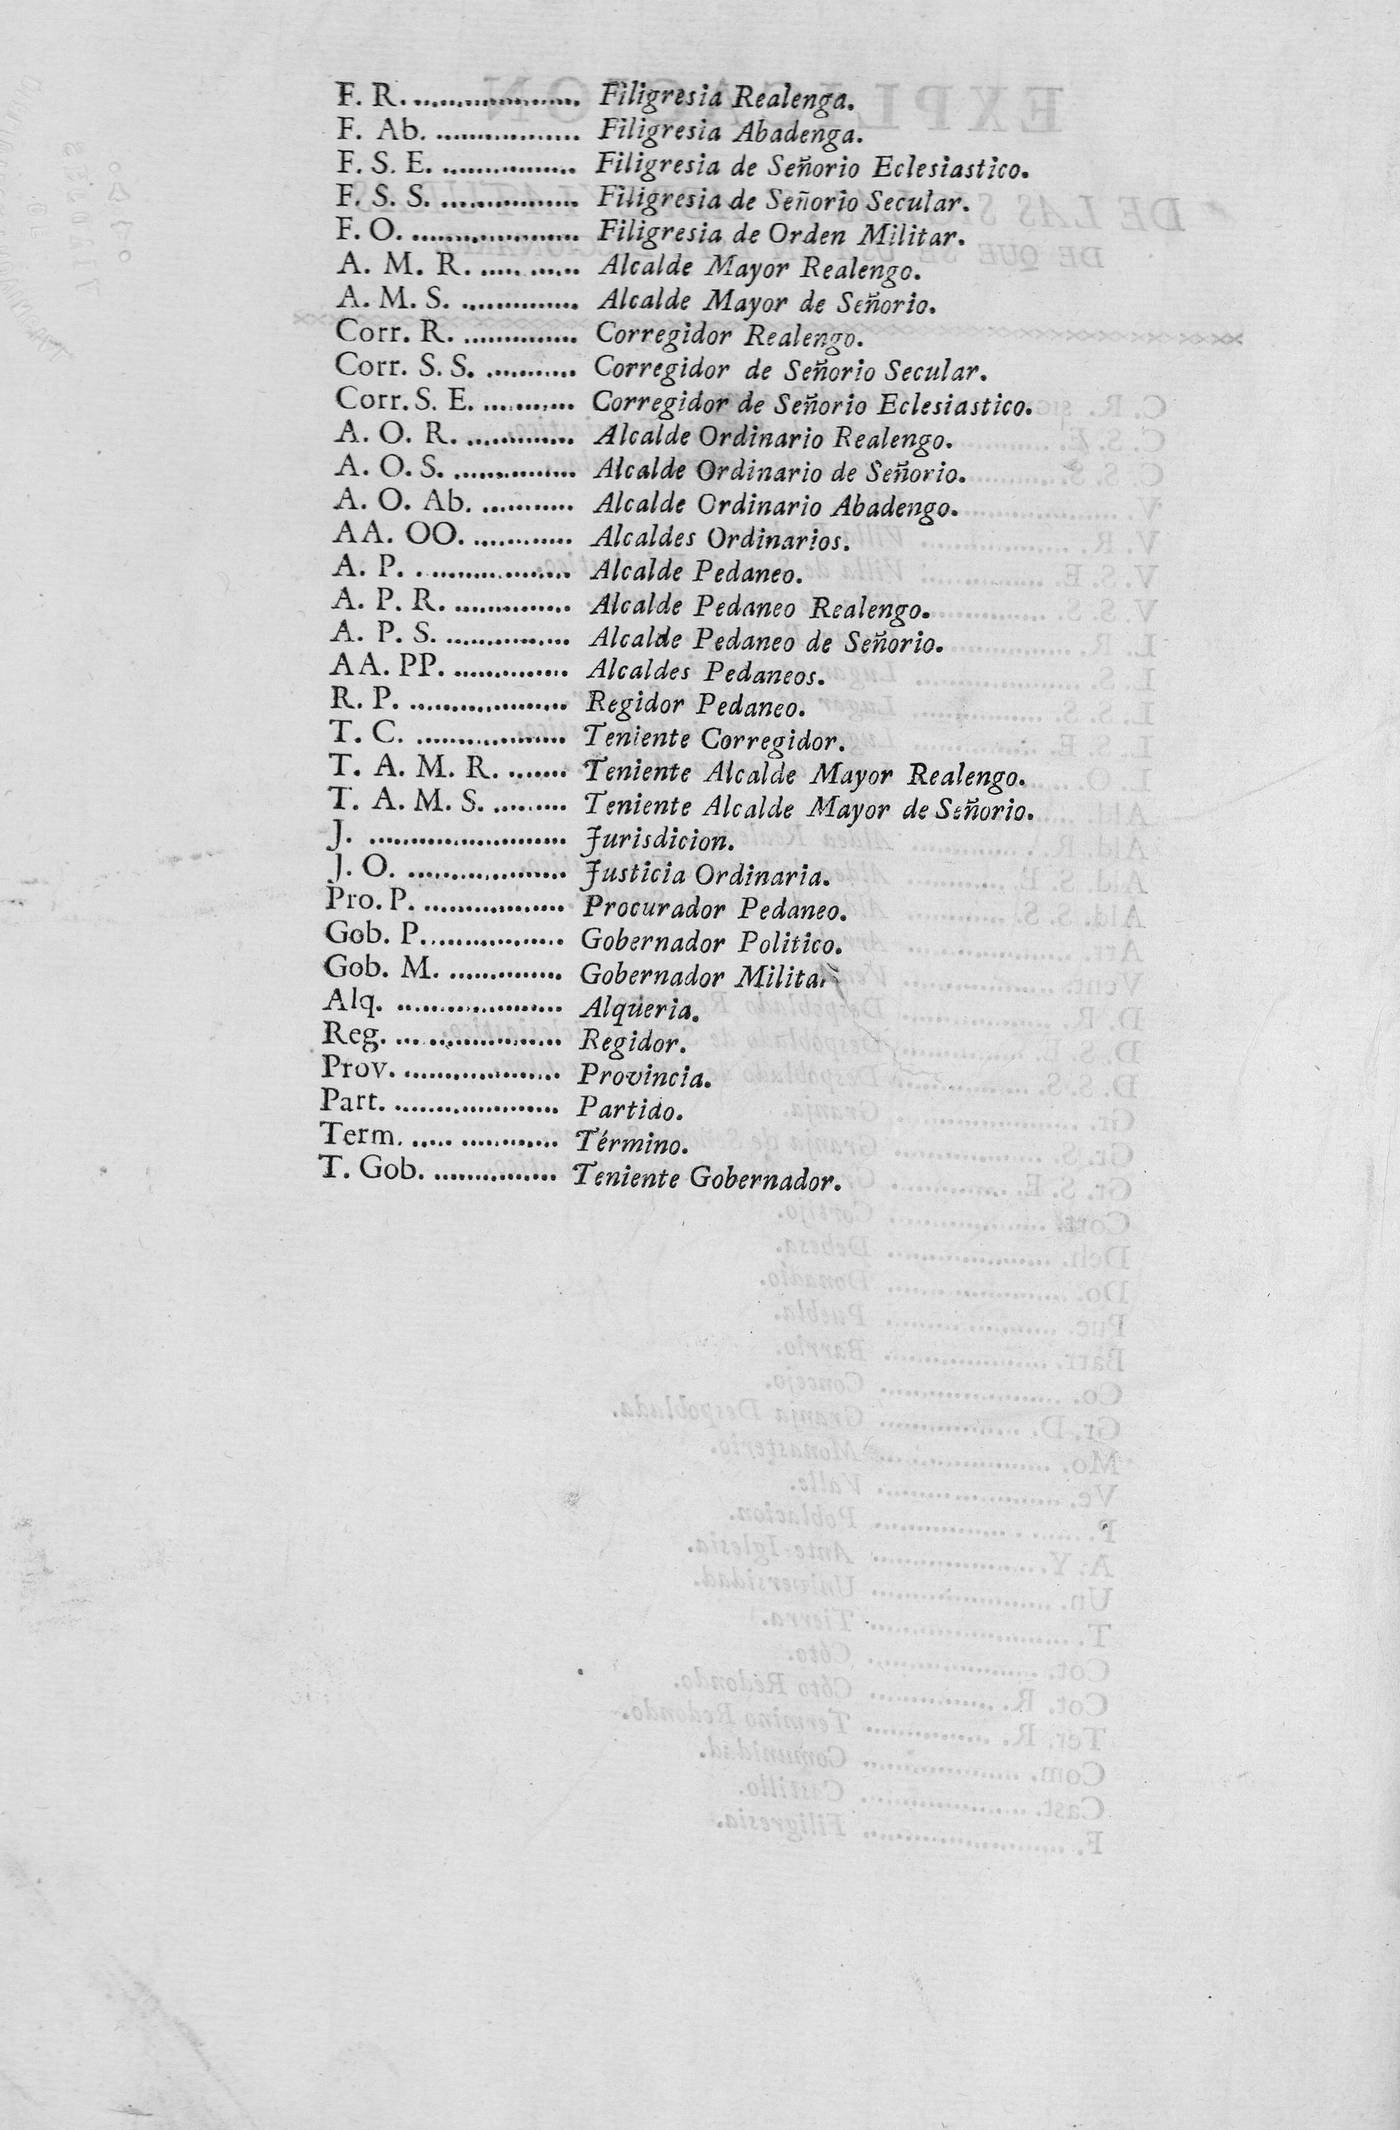 F. R. .................... Filigresia Realenga.
F. Ab. ................. Filigresia Abadenga.
F. S. E. ................ Filigresia de Señorio Eclesiastico.
F. S. S. ................. Filigresia de Señorio Secular.
F. O. .................... Filigresia de Orden Militar.
A. M. R. ............ Alcalde Mayor Realengo.
A. M. S. .............. Alcalde Mayor de Señorio.
Corr. R. .............. Corregidor Realengo.
Corr. S. S. ........... Corregidor de Señorio Secular.
Corr. S. E. ........... Corregidor de Señorio Eclesiastico.
A. O. R. ............. Alcalde Ordinario Realengo.
A. O. S. ............... Alcalde Ordinario de Señorio.
A. O. Ab. ........... Alcalde Ordinario Abadengo.
AA. OO. ............ Alcaldes Ordinarios.
A. P. .................. Alcalde Pedaneo.
A. P. R. .............. Alcalde Pedaneo Realengo.
A. P. S. ............... Alcalde Pedaneo de Señorio.
AA. PP. .............. Alcaldes Pedaneos.
R. P. ................... Regidor Pedaneo.
T. C. .................. Teniente Corregidor.
T. A. M. R. ....... Teniente Alcalde Mayor Realengo.
T. A. M. S. ......... Teniente Alcalde Mayor de Señorio.
J. ........................ Jurisdicion.
J. O. ................... Justicia Ordinaria.
Pro. P. ................. Procurador Pedaneo.
Gob. P. ................ Gobernador Politico.
Gob. M. .............. Gobernador Militar
Alq. .................... Alqüeria.
Reg. .................... Regidor.
Prov. ................... Provincia.
Part. .................... Partido.
Term. ................. Término.
T. Gob. ............... Teniente Gobernador.